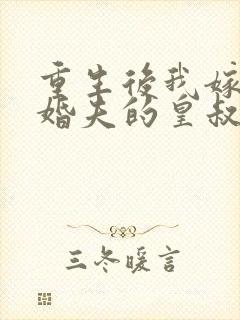 重生後我嫁
婚夫的皇叔
三冬暖言